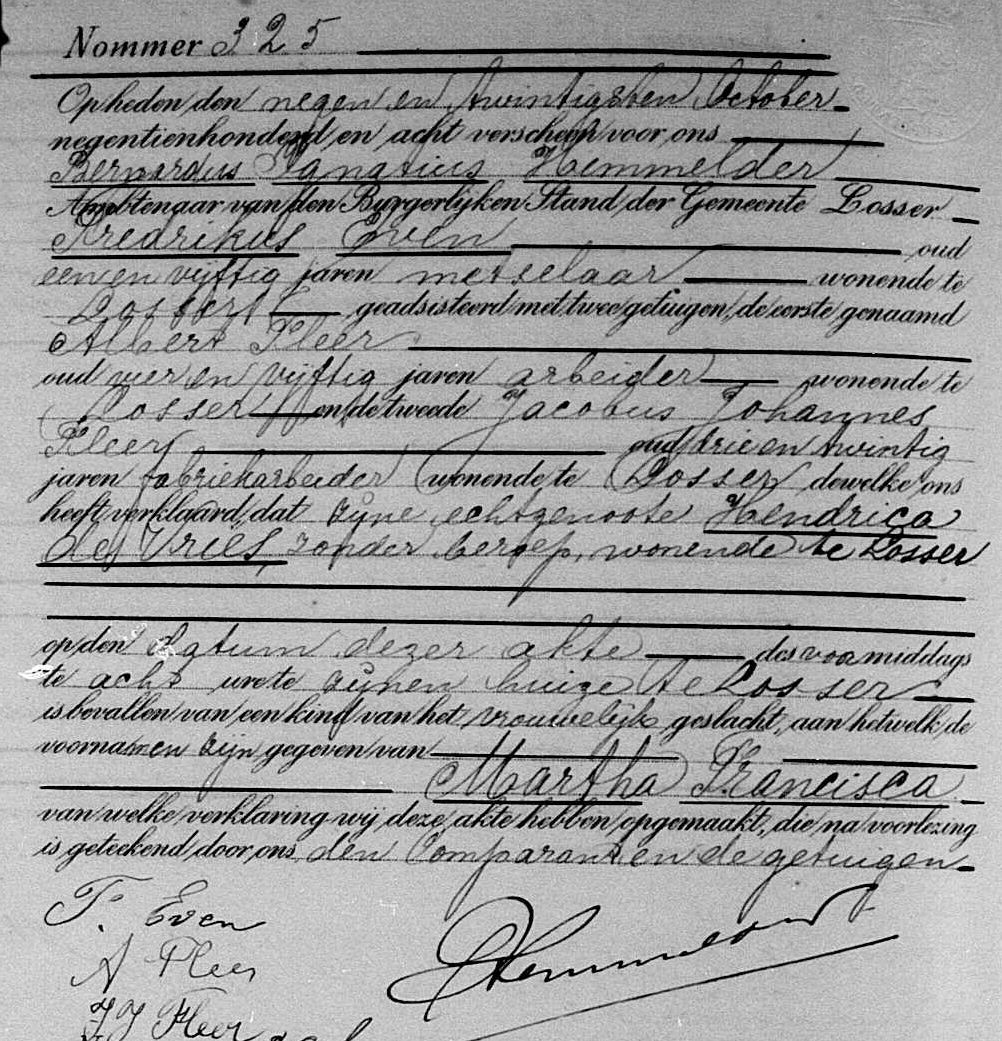 Nommer 325
Op heden den negen en twintigsten October
negentienhonderd en acht verscheen voor ons
Bernardus Ignatius Hemmelder
Ambtenaar van den Burgerlijken Stand der Gemeente Losser
Fredrikus Even oud
een en vijftig jaren metselaar wonende te
Losser geadsisteerd met twee getuigen, de eerste genaamd
Albert Fleer
oud vier en vijftig jaren arbeider wonende te
Losser en de tweede Jacobus Johannes
Fleer oud drie en twintig
jaren fabriekarbeider wonende te Losser dewelke ons
heeft verklaard, dat zijne echtgenoote Hendrica
de Vries, zonder beroep, wonende te Losser
op den datum dezer akte des voormiddags
te acht ure te zijnen huize te Losser
is bevallen van een kind van het vrouwelijk geslacht, aan hetwelk de
voornamen zijn gegeven van
Martha Francisca
van welke verklaring wij deze akte hebben opgemaakt, die na voorlezing
is geteekend door ons den Comparant en de getuigen
F. Even
A Fleer
JJ Fleer